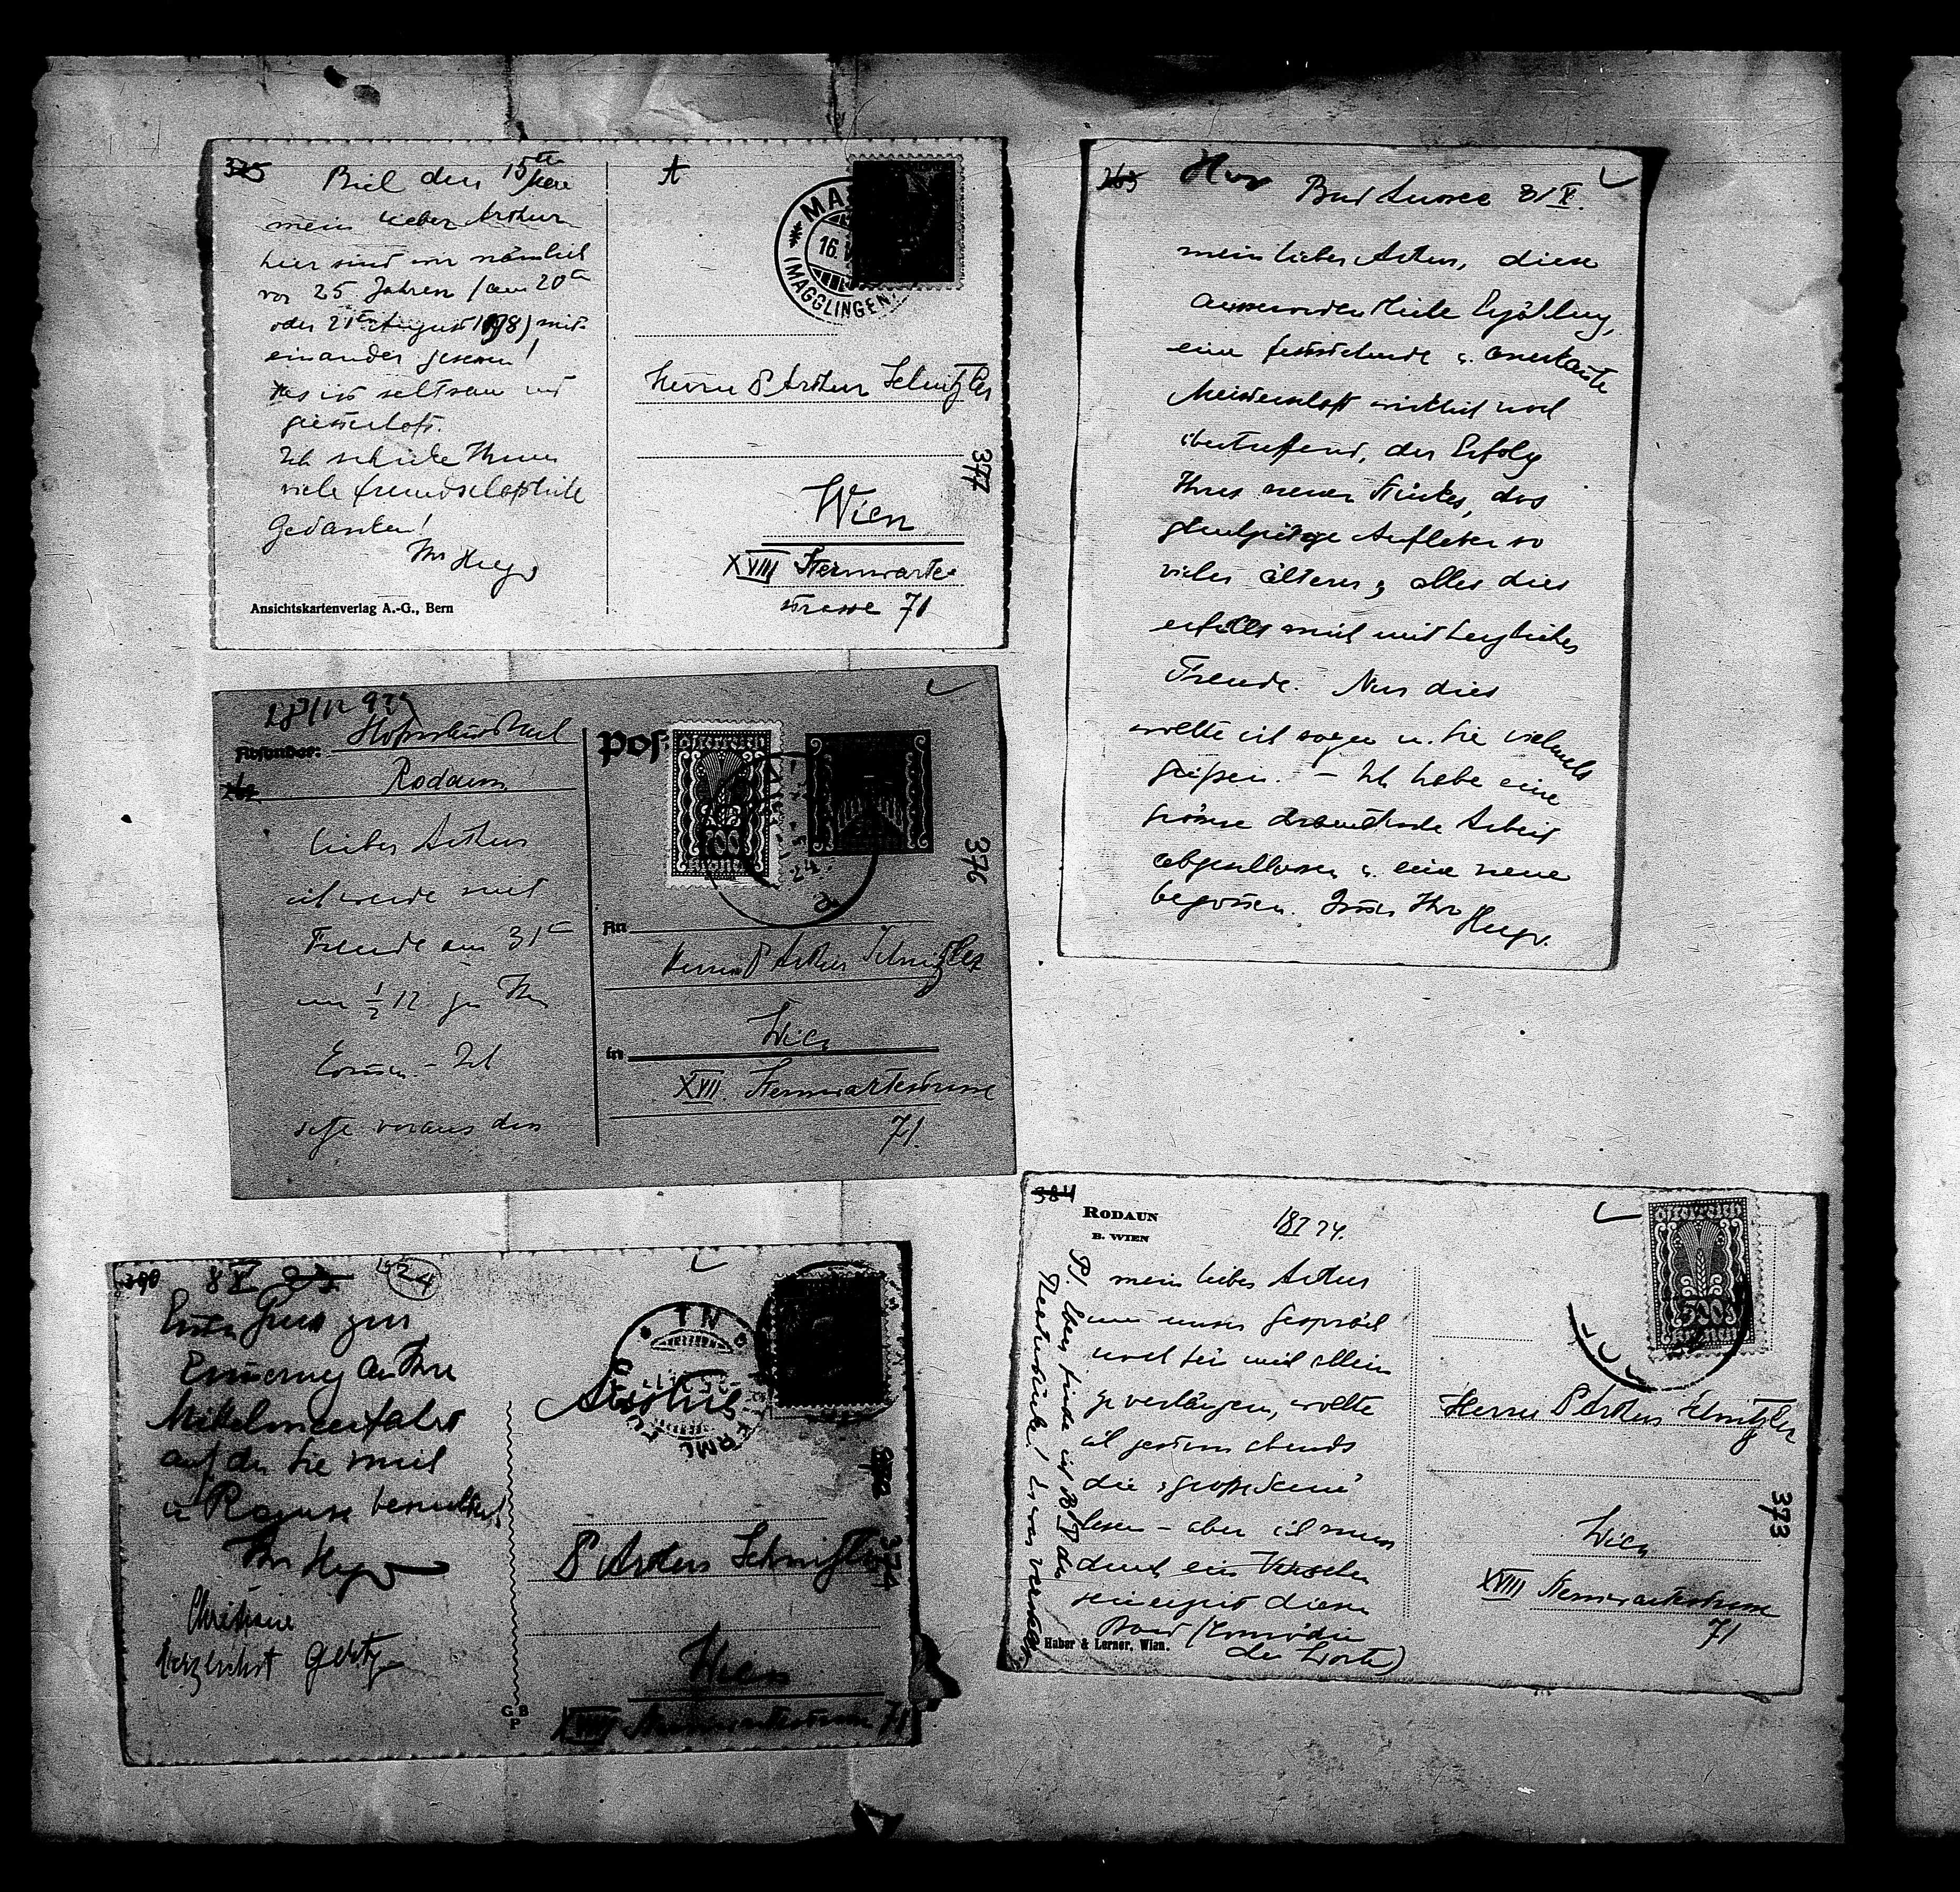 375
Biel den 15ten
mein lieber Arthur
hier sind wir nämlich
vor 25 Jahren (am 20ten
oder 21ten August 1898) mit-
einander gesessen!
das ist seltsam und
geisterhaft.
Ich schicke Ihnen
viele freundschaftliche
Gedanken!
Ihr Hugo
Ansichtskartenverlag A.-G., Bern
A
MA
16. V
(MAGGLINGEN)
Herrn Dr Arthur Schnitzler
377
Wien
XVIII Sternwarte-
strasse 71
Hugo
Bad Aussee 31 X.
mein lieber Arthur, diese
ausserordentliche Erzählung,
eine feststehende u. anerkannte
Meisterschaft wirklich noch
übertreffend, der Erfolg
Ihres neuen Stückes, das
gleichzeitige Aufleben so
vieler älterer, alles dies
erfüllt mich mit herzlicher
Freude. Nur dies
wollte ich sagen u. Sie vielmals
grüßen. – Ich habe eine
grosse dramatische Arbeit
abgeschlossen u. eine neue
begonnen. Immer Ihr Hugo.
Absender: Hofmannsthal
Rodaun
lieber Arthur
ich werde mit
Freude am 31ten
um ½ 12 zu Ihnen
kommen. – Ich
setze voraus den
Post
Österreich
100
Kronen
24.
376
An
Herrn Dr Arthur Schnitzler
in
Wien
XVIII. Sternwartestrasse
71.
8 V 23
1924
Einen Gruss zur
Erinnerung an Ihre
Mittelmeerfahrt
auf der Sie mich
in Ragusa besuchten!
Ihr Hugo
Christiane
herzlichst Gerty
G B
P
Austria
Dr Arthur Schnitzler
374
Wien
XVIII Sternwartestrasse 71
384
RODAUN
B. WIEN
18 I 24.
mein lieber Arthur
um unser Gespräch
noch für mich allein
zu verlängern, wollte
ich gestern abends
die „große Scene“
lesen – aber ich muss
durch ein Versehen
seinerzeit diesen
Band (Comödie
der Worte)
Haber & Lerner, Wien.
Österreich
500
Kronen
Herrn Dr Arthur Schnitzler
373
Wien
XVIII Sternwartestrasse
71